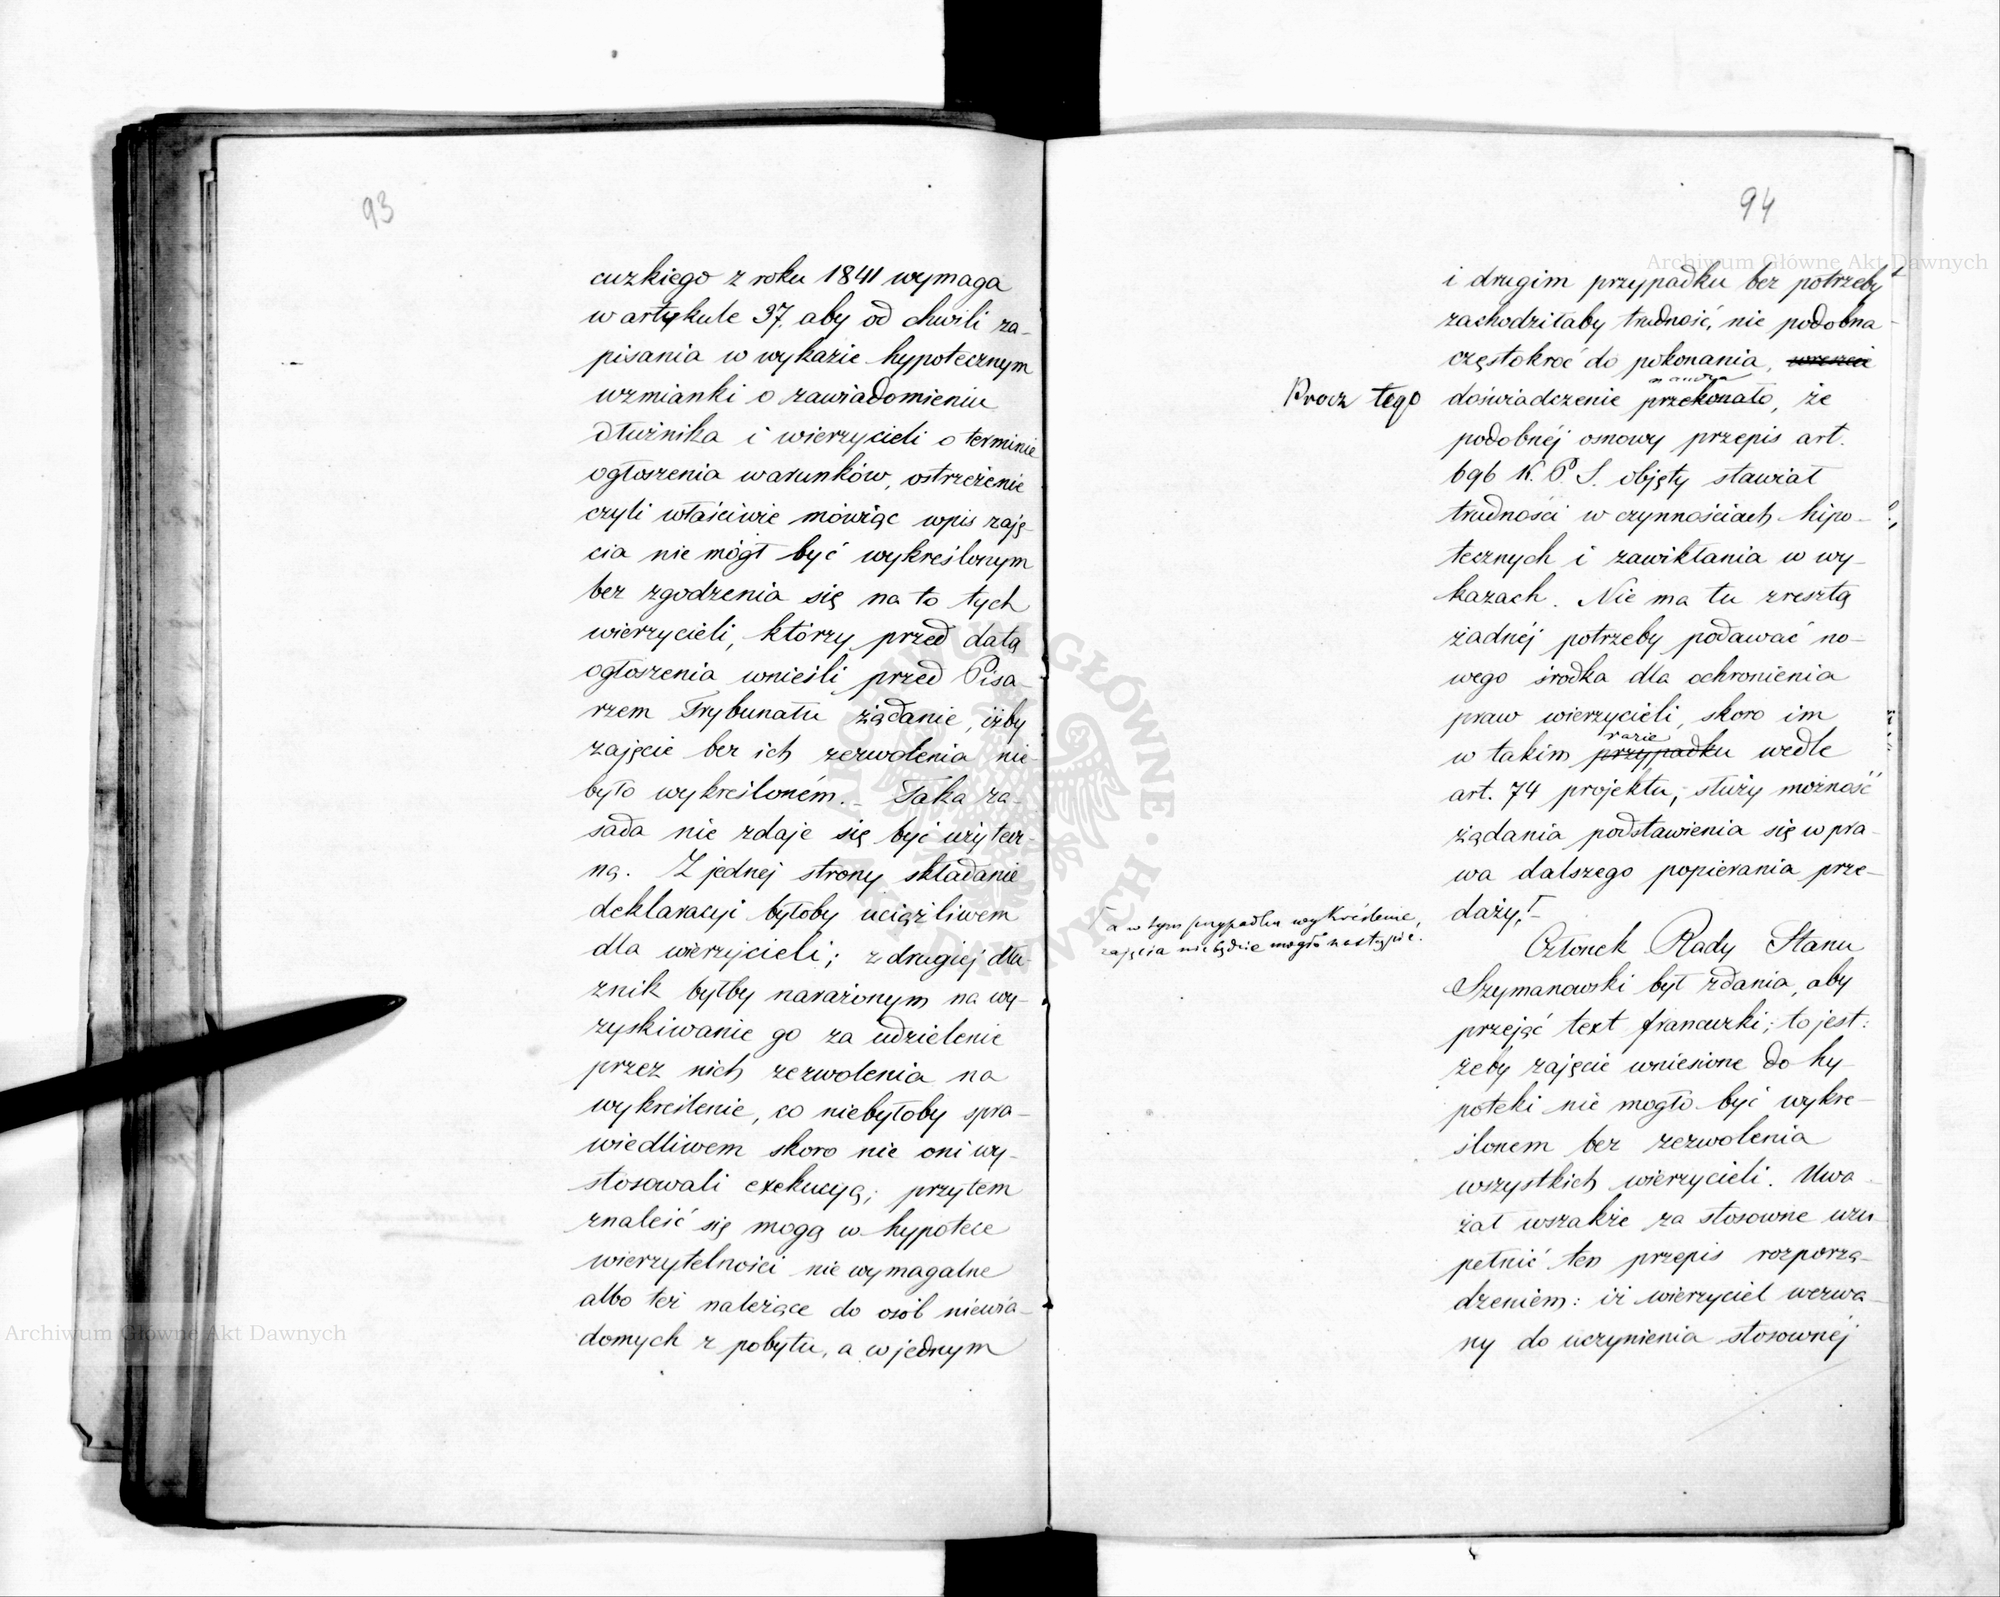 93
cuzkiego z roku 1841 wymaga
w artykule 37. aby od chwili za-
pisania w wykazie hypotecznym
wzmianki o zawiadomieniu
dłużnika i wierzycieli o terminie
ogłoszenia warunków, ostrzeżenie
czyli właściwie mówiąc wpis zaję-
cia nie mógł być wykreślonym
bez zgodzenia się na to tych
wierzycieli, którzy przed datą
ogłoszenia wnieśli przed Pisa-
rzem Trybunału żądanie, iżby
zajęcie bez ich zezwolenia nie
było wykreśloném. - Taka za-
sada nie zdaje się być użytecz-
ną. Z jednej strony składanie
deklaracyi byłoby uciążliwem
dla wierzycieli; z drugiej dłu-
żnik byłby narażonym na wy-
zyskiwanie go za udzielenie
przez nich zezwolenia na
wykreślenie, co niebyłoby spra-
wiedliwem skoro nie oni wy-
stosowali exekucyą; przytem
znaleść się mogą w hypotece
wierzytelności nie wymagalne
albo też należące do osób niewia-
domych z pobytu, a w jednym
94
i drugim przypadku bez potrzeby
zachodziłaby trudność, nie podobna
częstokroć do pokonania, wreszcie
Procz tego doświadczenie przekonało, że
podobnéj osnowy przepis art.
696 K. P. S. objęty stawiał
trudności w czynnościach hipo-
tecznych i zawikłania w wy-
kazach. Nie ma tu zresztą
żadnéj potrzeby podawać no-
wego środka dla ochronienia
praw wierzycieli, skoro im
razie
w takim przypadku wedle
art. 74 projektu, służy możność
żądania podstawienia się w pra-
wa dalszego popierania prze-
daży,
a w tym przypadku wykreślenie
zajęcia niebędzie mogło nastąpić.
Członek Rady Stanu
Szymanowski był zdania, aby
przejąć text francuzki; to jest:
żeby zajęcie wniesione do hy-
poteki nie mogło być wykre-
ślonem bez zezwolenia
wszystkich wierzycieli. Uwa-
żał wszakże za stosowne uzu-
pełnić ten przepis rozporzą-
dzeniem: iż wierzyciel wezwa-
ny do uczynienia stosownéj
Archiwum Główne Akt Dawnych
Archiwum Główne Akt Dawnych